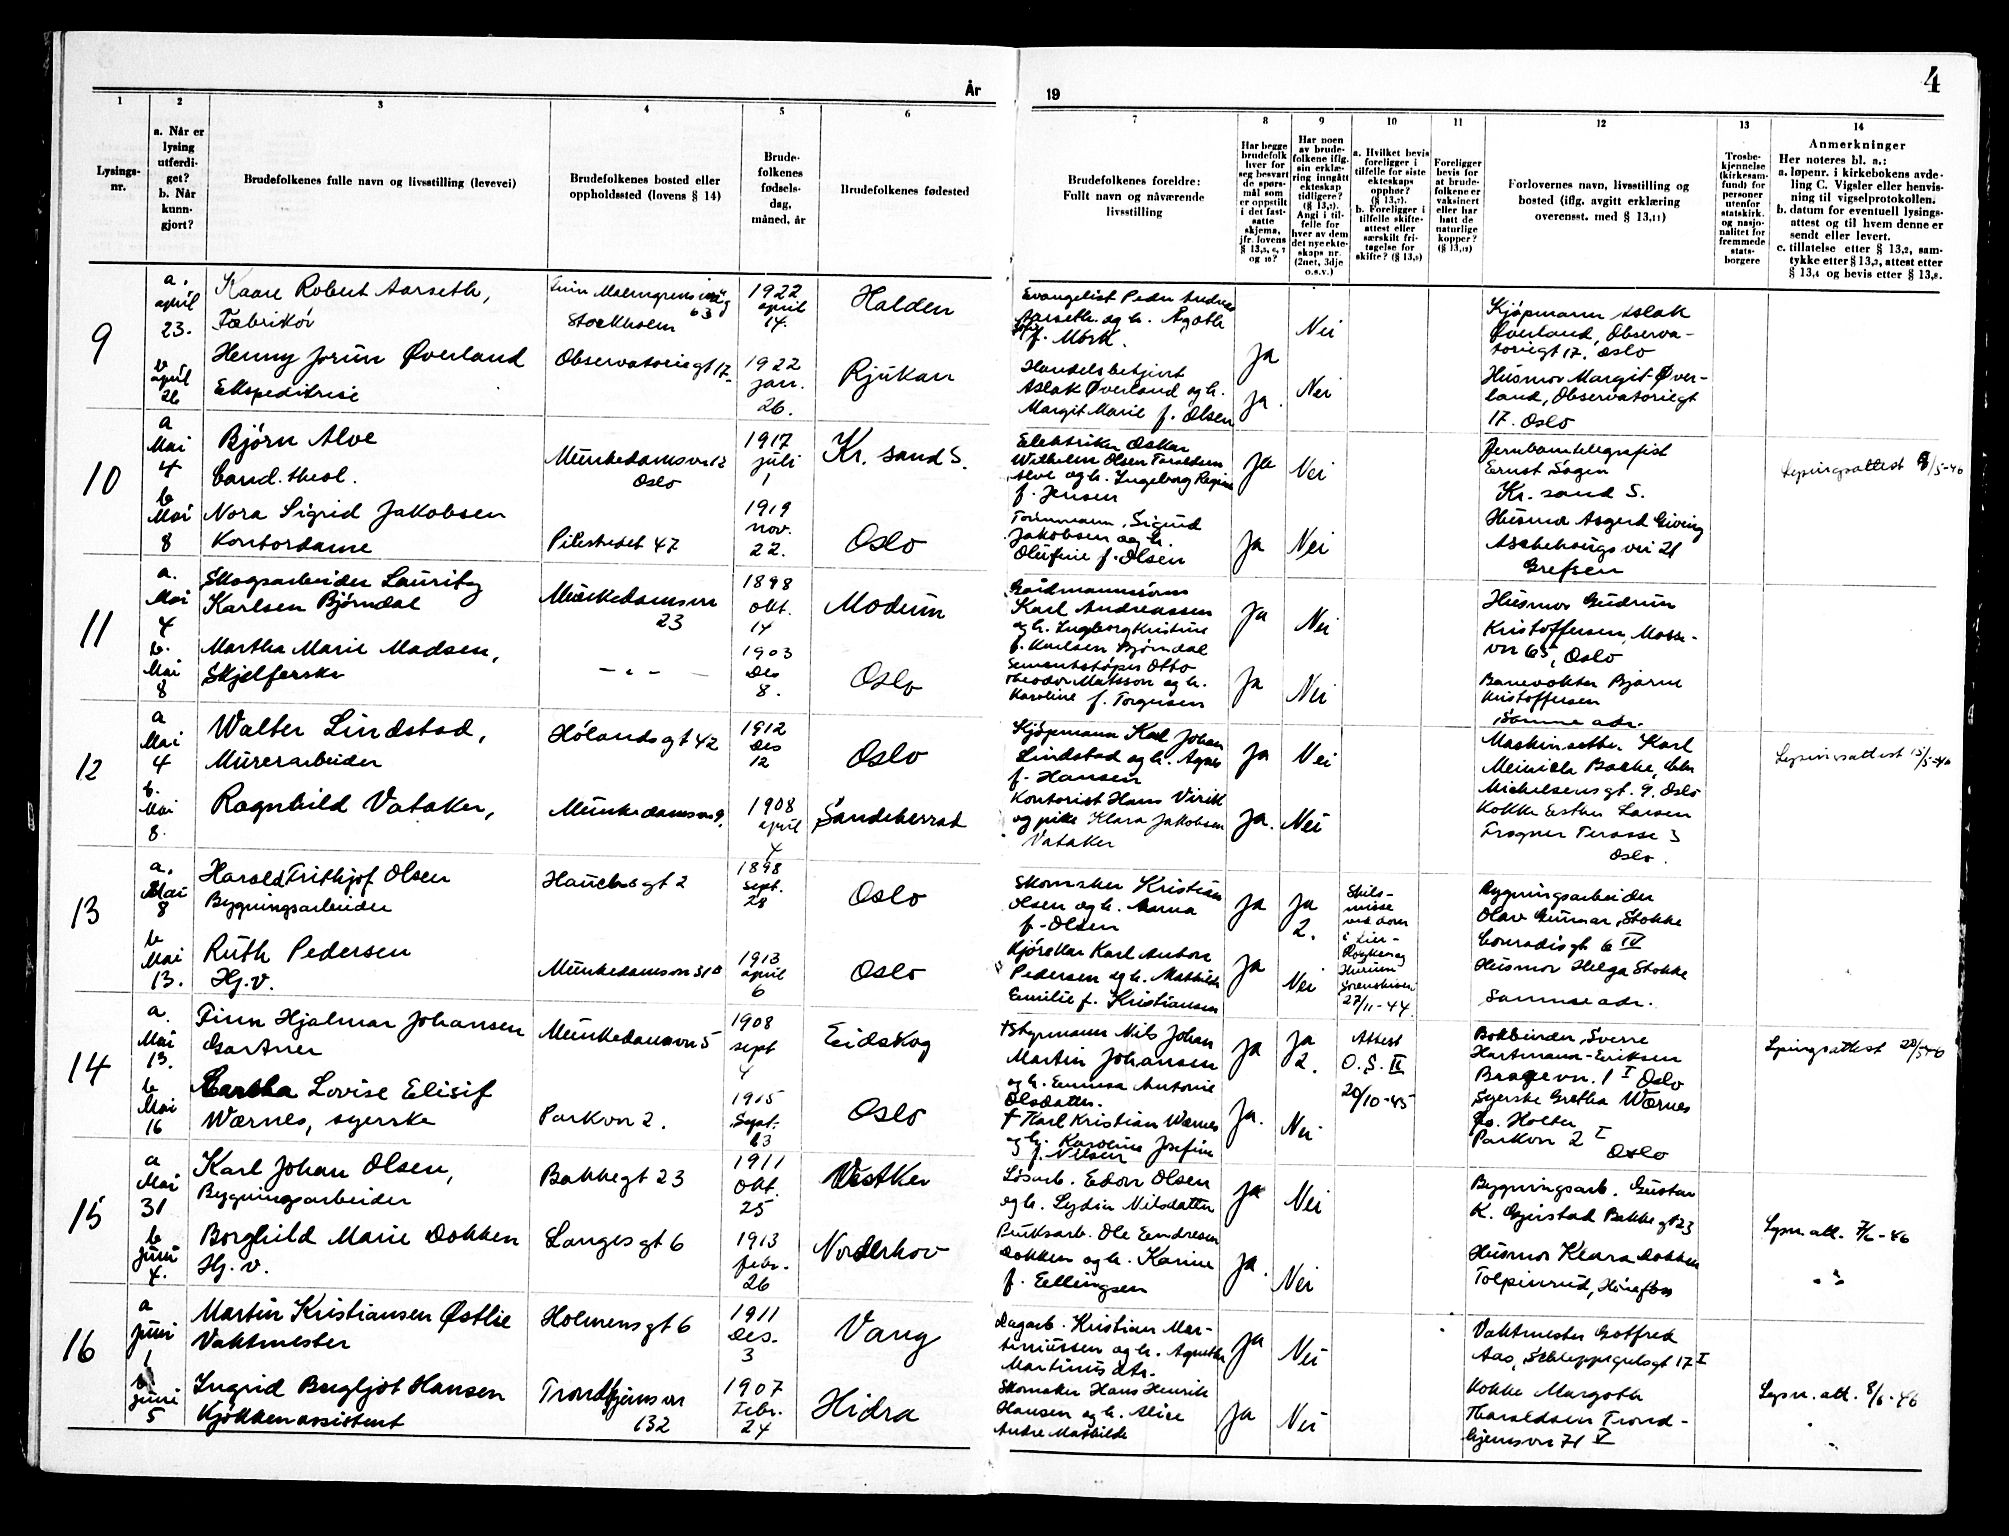 4
År
19
1
2
3
4
5
6
7
8
9
10
11
12
13
14
Lysings-
nr.
a. Når er
lysing
utferdi-
get?
b. Når
kunn-
gjort?
Brudefolkenes fulle navn og livsstilling (levevei)
Brudefolkenes bosted eller
oppholdssted (lovens § 14)
Brude-
folkenes
fødsels-
dag,
måned, år
Brudefolkenes fødested
Brudefolkenes foreldre:
Fullt navn og nåværende
livsstilling
Har begge
brudefolk
hver for
seg besvart
de spørs-
mål som
er oppstilt
i det fast-
satte
skjema,
jfr. lovens
og 10?
Har noen
av brude-
folkene iflg.
sin erklæ-
ring inngått
ekteskap
tidligere?
Angi i til-
felle for
hver av dem
det nye ekte-
skaps nr.
(2net, 3dje
o.s.v.)
a. Hvilket bevis
foreligger i
tilfelle for siste
ekteskaps
opphør?
b. Foreligger i
tilfelle skifte-
attest eller
særskilt fri-
tagelse for
Foreligger
bevis for
at brude-
folkene er
vaksinert
eller har
hatt de
naturlige
kopper?
Forlovernes navn, livsstilling og
bosted (iflg. avgitt erklæring
overensst. med § 13,11)
Trosbe-
kjennelse
(kirkesam-
fund) for
personer
utenfor
statskirk.
og nasjo-
nalitet for
fremmede
stats-
borgere
Anmerkninger
Her noteres bl. a.:
a. løpenr. i kirkebokens avde-
ling C. Vigsler eller henvis-
ning til vigselprotokollen.
b. datum for eventuell lysings-
attest og til hvem denne er
sendt eller levert.
c. tillatelse etter § 13,2, sam-
tykke etter § 13,3, attest etter
§ 13,4 og bevis etter § 13,8.
9
a.
april
23.
Kaare Robert Aarseth,
Fabrikør
63
Stockholm
1922
april
14.
Halden
Evangelist Peder Andreas
Aarseth og h. Agoth
f. Mork.
Ja
Nei
Kjøpmann Aslak
Øverland, Observa-
toriegt 17. Oslo
b
april
26
Henny Jorun Øverland
Ekspeditrise
Observatoriegt 17-
1922
jan.
26.
Rjukan
Handelsbetjent
Aslak Øverland og h.
Margit Marie f. Olsen
Ja.
Nei
Husmor Margit Øver-
land, Observatoriegt
17. Oslo
10
a
Mai
4
Bjørn Alve
Cand. theol.
Munkedamsvn 12
Oslo
1917
juli
1
Kr. sand S.
Elektriker Oskar
Wilhelm Olsen Taraldsen
Alve og h. Ingeborg Regine
f. Jensen
Ja
Nei
Jernbanetelegrafist
Ernst Sagen
Kr. sand S.
Lysingsattest 8/5-46
b
Mai
8
Nora Sigrid Jakobsen
Kontordame
Pilestredet 47
1919
nov.
22.
Oslo
Tømmermann, Sigurd
Jakobsen og h.
Olufine f. Olsen
Ja
Nei
Husmor Asgerd Giving
Aschehougs vei 21
Grefsen
11
a.
Mai
4
Skogsarbeider Lauritz
Karlsen Bjørndal
Munkedamsvn
23
1898
okt.
14
Modum
Gårdmannssønn
Karl Andreassen
og h. Ingeborg Kristine
f. Karlsen Bjørndal
Ja
Nei
Husmor Gudrun
Kristoffersen, Mosse-
vn 65, Oslo
b.
Mai
8
Martha Marie Madsen,
Skjelferske
— " — —
1903
Des
8.
Oslo
Sementstøper Otto
Theodor Matsson og h.
Karoline f. Torgersen
Ja
Nei
Banevokter Bjarne
Kristoffersen
Samme adr.
12
a
Mai
4
Walter Lindstad,
Murerarbeider
Hølandsgt 42
1912
Des
12
Oslo
Kjøpmann Karl Johan
Lindstad og h. Agnes
f. Hansen
Ja
Nei
Maskinsetter Karl
Meinich Bache, Chr
Michelsensgt. 9, Oslo
Lysingsattest 15/5-46
b.
Mai
8.
Ragnhild Vataker,
Munkedamsvn 9.
1908
april
4
Sandeherred
Kontorist Hans Virik
og pike Klara Jakobsen
Vataker
Ja.
Nei
Kokke Esther Larsen
Frogner Terasse 3
Oslo.
13
a.
Mai
8
Harald Frithjof Olsen
Bygningsarbeider
Hauchsgt 2
1898
Sept.
28
Oslo
Skomaker Kristian
Olsen og h. Anna
f. Olsen
Ja
Ja
2.
Skils-
misse
ved dom
i Lier-
Røyken og
Hurum
Sorenskriveri
27/11-44
Bygningsarbeider
Olav Gunnar, Stokke
Conradisgt 6 IV
b
Mai
13.
Ruth Pedersen
Hj. V.
Munkedamsvn 31B
1913
april
6
Oslo
Kjørekar Karl Anton
Pedersen og h. Mathilde
Emilie f. Kristiansen
Ja
Nei
Husmor Helga Stokke
Samme adr.
14
a.
Mai
13.
Finn Hjalmar Johansen
Gartner
Munkedamsvn 5
1908
sept
4
Eidskog
†Styrmann Nils Johan
Martin Johansen
og h. Emma Antonie
Olsdatter.
Ja
Ja
2.
Attest
O.S. II
20/10-45
Bokbinder, Sverre
Hartmann-Eriksen
Bragevn. 1 I Oslo
Lysingsattest 20/5-46
b
Mai
16
Martha Lovise Elisif
Wærnes, syerske
Parkvn 2.
1915
Sept.
23
Oslo
† Karl Kristian Wærnes
og h. Karoline Josefine
f. Nilsen
Ja.
Nei
Syerske Gretha Wærnes
Holter
Parkvn 2 I
Oslo
15
a
Mai
31
Karl Johan Olsen,
Bygningsarbeider
Bakkegt 23
1911
Okt.
25
Vestker
Løsarb. Edon Olsen
og h. Lydia Nilsdatter
Ja
Nei
Bygningsarb. Gustav
K. Gjerstad Bakkegt 23
Lysn. att. 7/6-46
b
Juni
4.
Borghild Marie Dokken
Hj. v.
Langesgt 6
1913
febr.
26
Norderhov
Bruksarb. Ole Endresen
Dokken og h. Karine
f. Ellingsen
Ja.
Nei
Husmor Klara Dokken
Tolpinrud, Hønefoss
16
a
Juni
1
Martin Kristiansen Østlie
Vaktmester
Holmensgt 6
1911
Des.
3
Vang
Dagarb. Kristian Mar-
tinussen og h. Agnethe
Martinusdtr.
Ja
Nei
Vaktmester Gotfred
Aas, Schleppegrelsgt 17 I
b
Juni
5
Ingrid Bergljot Hansen
Kjøkkenassistent
Trondhjemsvn
132
1907
Febr.
24
Hidra
Skomaker Hans Henrik
Hansen og h. Alice
Andre Mathilde
Ja
Nei
Kokke Margoth
Tharaldsen Trond-
hjemsvn 71 V
Lysn. att. 8/6-46